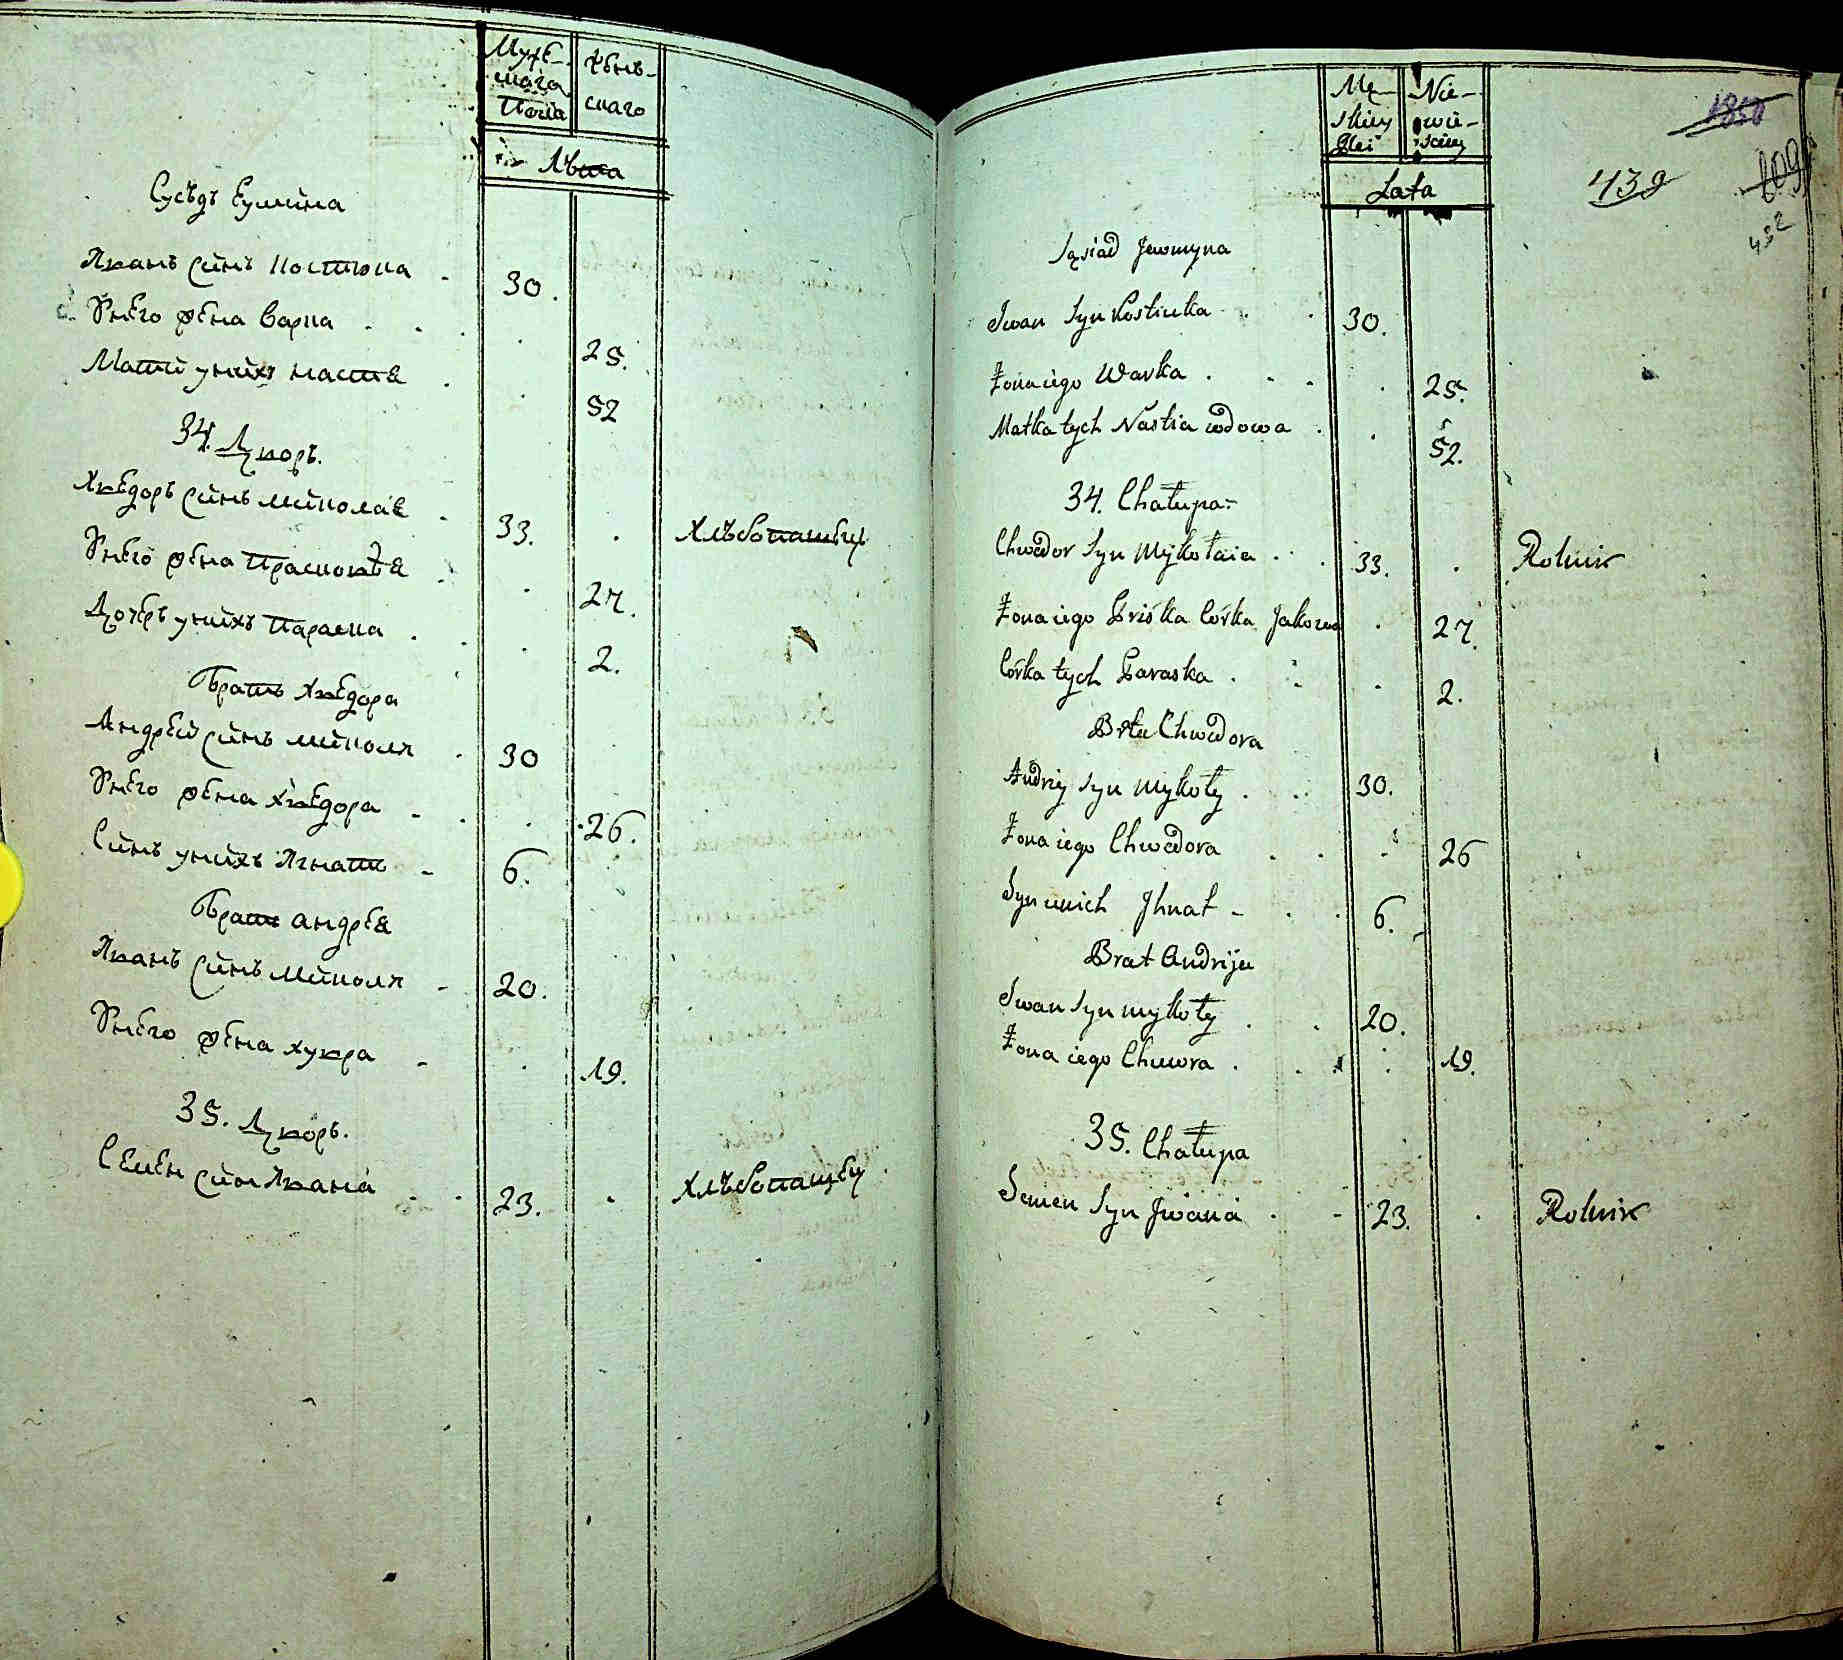 Муже-
скага
Пола
Жѣнь-
скаго
Лѣта
Сусѣдъ Еумина
Иванъ синъ Костюка - 30.
Унего жена Варка . . . 25.
Мати унихъ Настя . . 52
34. Дворъ.
Хведоръ синъ Миколая - 33. . Хлѣбопашец
Унего жена Прасковѣя . . 27.
Дочеръ унихъ Параска . . . 2.
Братъ Хведора
Андрей синъ Миколи . 30
Унего жена Хведора - . . 26.
Синъ унихъ Игнатъ - 6.
Братъ Андрея
Иванъ синъ Миколи - 20.
Унего жена Хувра - . 19.
35. Дворъ.
Семен син Ивана . . 23. . Хлѣбопащец
Mę-
skiey
Płci
Nie-
wie-
sciey
Lata
1850
439
609
452
Sąsiad Jewmyna
Iwan Syn Kostiuka . . 30.
Żona iego Warka . . . . 25.
Matka tych Nastia wdowa . . 52.
34. Chałupa
Chwedor Syn Mykołaia . . 33. . Rolnik
Żona iego Priśka Córka Jakowa . 27.
Córka tych Paraska . . . 2.
Brt Chwedora
Andriy Syn Mykoły . . 30.
Żona iego Chwedora . . . 26
Syn unich Jhnat - . . 6.
Brat Andrija
Iwan Syn Mykoły . . 20.
Żona iego Chuwra . . . . 19.
35. Chałupa
Semen Syn Jwana . - 23. . Rolnik